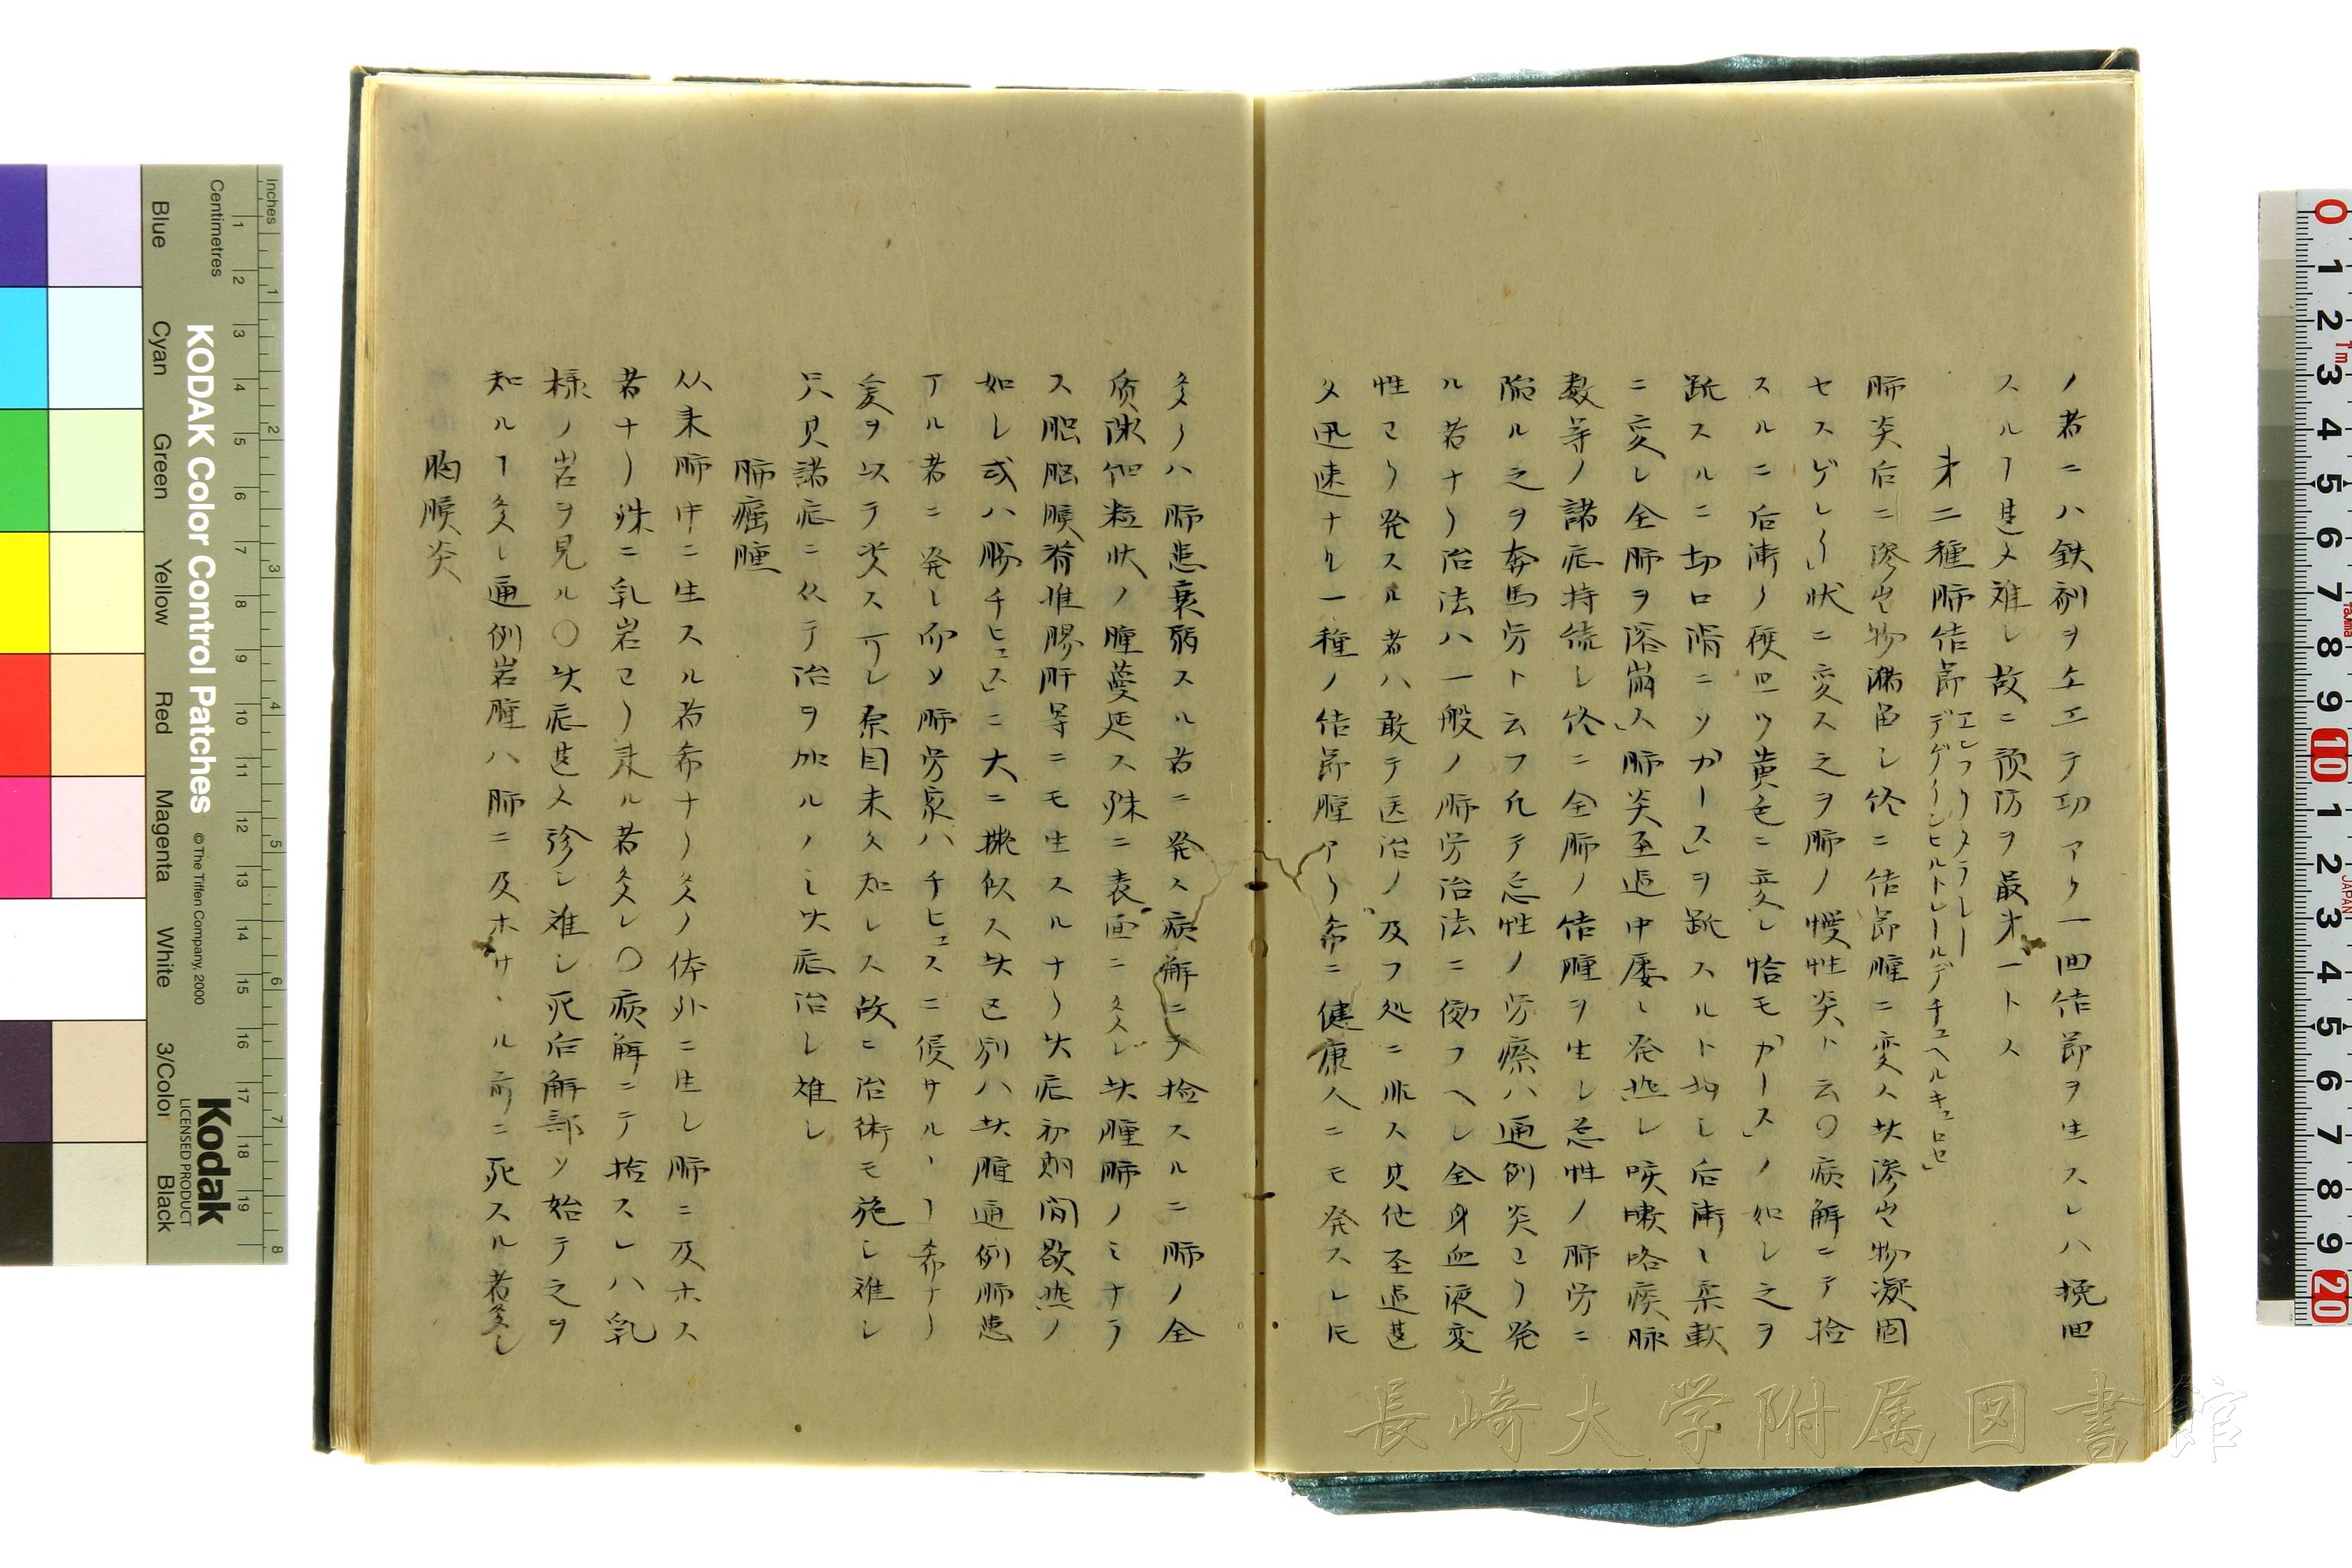 ノ者ニハ鉄剤ヲ与エテ功アリ一回結節ヲ生スレハ挽回
スルヿ甚タ難シ故ニ預防ヲ最才一トス
才二種肺結節
エレフリタラレー
デゲーンヒルトレールデチュヘルキュロセ」
肺炎后ニ滲出物瀦留シ終ニ結節腫ニ変ス其滲出物凝固
セスゲレー」状ニ変ス之ヲ肺ノ慢性炎ト云〇病解ニテ捡
スルニ后漸々硬固ツ黄色ニ変シ恰モカース」ノ如シ之ヲ
スルニ切口滑ニソカース」ヲ スルト均シ后漸々柔軟
ニ変シ全肺ヲ溶崩ス」肺炎経過中屡々発熱シ咳嗽咯痰脉
数等ノ諸症持続シ終ニ全肺ノ結腫ヲ生シ急性ノ肺労ニ
陥ル之ヲ奔馬労ト云フ凡テ急性ノ労瘵ハ通例炎ヨリ発
ル者ナリ治法ハ一般ノ肺労治法ニ傚フヘシ全身血液変
性ヨリ発スル者ハ敢テ医治ノ及フ処ニ非ス其他経過甚
タ迅速ナル一種ノ結節腫アリ希ニ健康人ニモ発スレ𪜈
多クハ肺患衰弱スル者ニ発ス病解ニテ捡スルニ肺ノ全
质 粒状ノ腫蔓延ス殊ニ表面ニ多シ其腫肺ノミナラ
ス脳 膜脊椎膠肝等ニモ生スルナリ其症初期間歇熱ノ
如シ或ハ膓チヒュス」ニ大ニ擬似ス其区別ハ其腫通例肺患
アル者ニ発シ而ソ肺労家ハチヒュスニ侵サルヽヿ希ナリ
爰ヲ以テ  ス可シ原因未タ知レス故ニ治術モ施シ難シ
只其諸症ニ从テ治ヲ加ルノミ其症治シ難シ
肺瘤腫
从来肺中ニ生スル者希ナリ多ク体外ニ生シ肺ニ及ホス
者ナリ殊ニ乳岩ヨリ来ル者多シ〇病解ニテ捡スレハ乳
様ノ岩ヲ見ル〇其症甚タ診シ難シ死后解部ソ始テ之ヲ
知ルヿ多シ通例岩腫ハ肺ニ及ホサヽル前ニ死スル者多シ
胸膜炎
KODAK Color Control Patches
© The Tiffen Company, 2000
Kodak
LICENSED PRODUCT
Inches
Centimetres
Blue
Cyan
Green
Yellow
Red
Magenta
White
3/Color
Black
長崎大学附属図書館
JAPAN